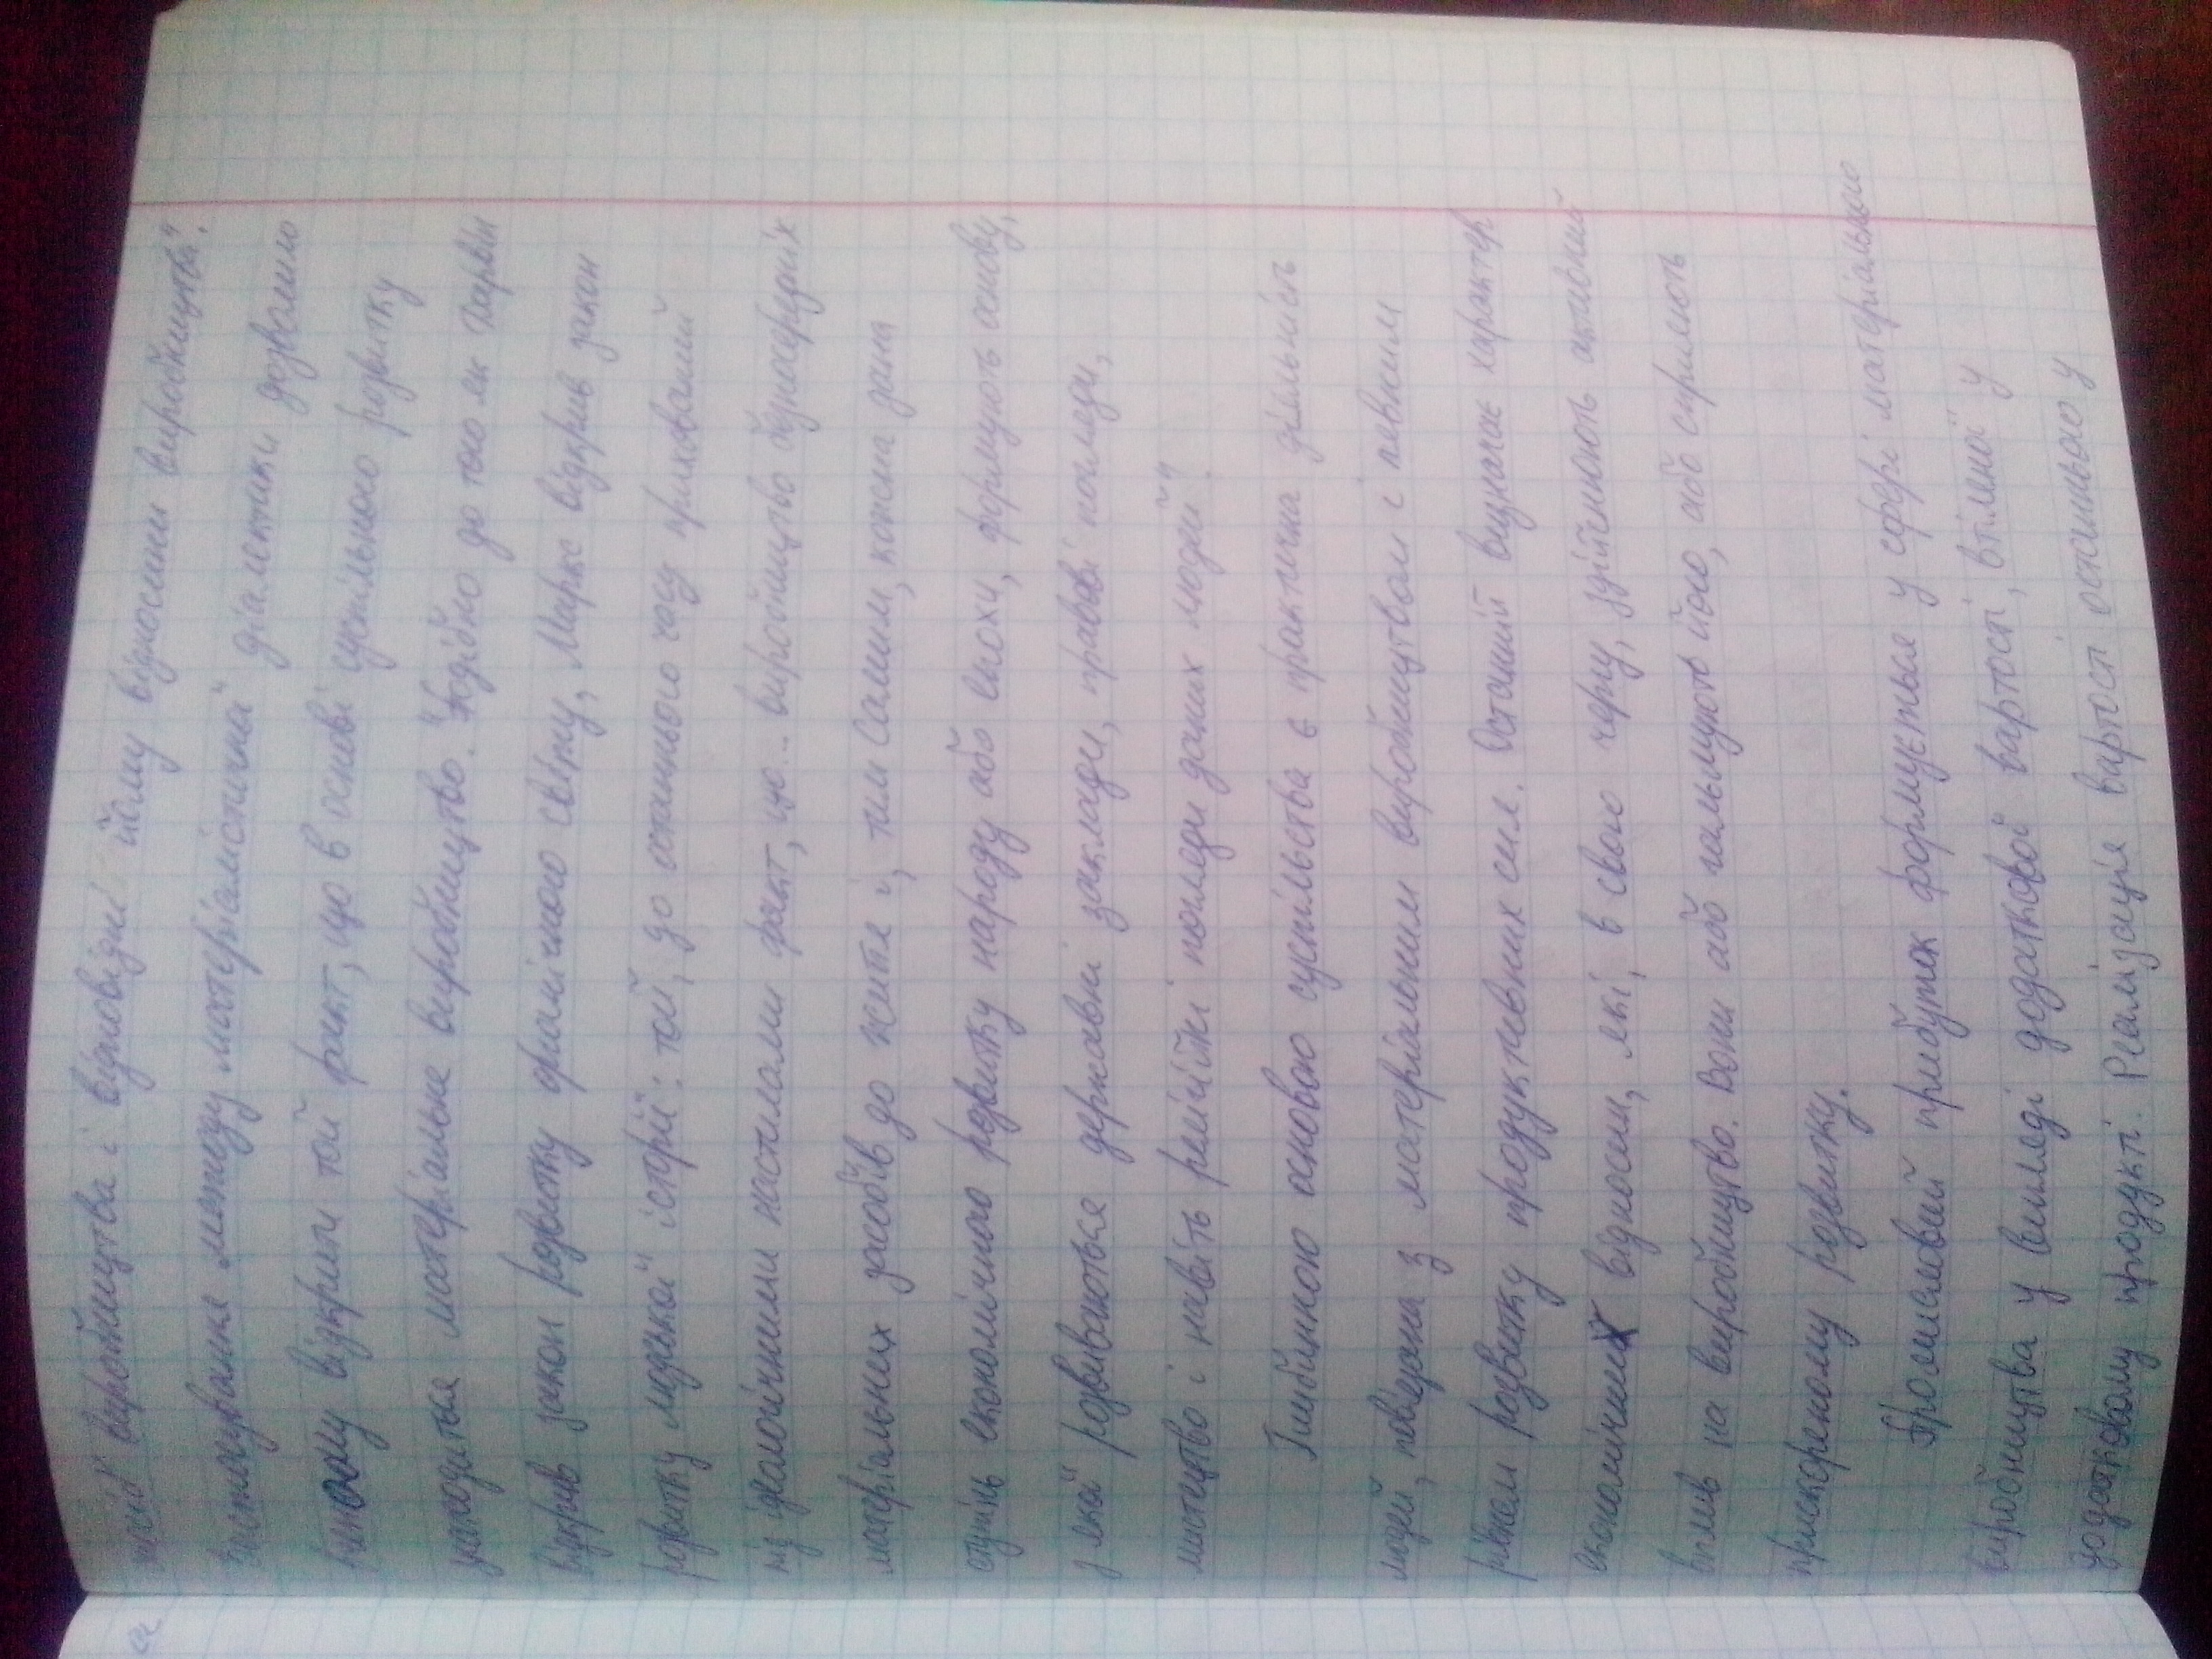 спосіб виробництва і відповідні йому відносини виробництва".
Застосування „методу матеріалістичної діалектики дозволило
йому відкрити той факт, що в основі суспільного розвитку
знаходиться матеріальне виробництво. "Подібно до того як Дарвін
відкрив закон розвитку органічного світу, Маркс відкрив закон
розвитку людської історії: той, до останнього часу прихований
під ідеологічними нашаруваннями факт, що... виробництво безпосередніх
матеріальних засобів до життя і, тим самим, кожна дана
ступінь економічного розвитку народу або епохи, формують основу,
з якої розвиваються державні заклади, правові погляди,
мистецтво і навіть релігійні погляди даних людей".
Глибинною основою суспільства є практична діяльність
людей, повязана з матеріальним виробництвом і певним
рівнем розвитку продуктивних сил. Останній визначає характер
економічних відносин, які, в свою чергу, здійснюють активний
вплив на виробництво. Вони або гальмують його, або сприяють
прискореному розвитку.
Промисловий прибуток формується у сфері матеріального
виробництва у вигляді додаткової вартості, втіленої у
додатковому продукті. Реалізація вартості останнього у